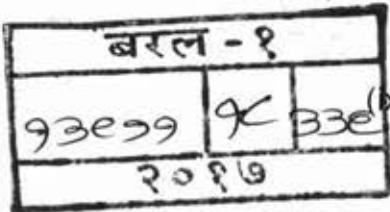 बरल - १
१३९११ १८ ३३९
२०१७